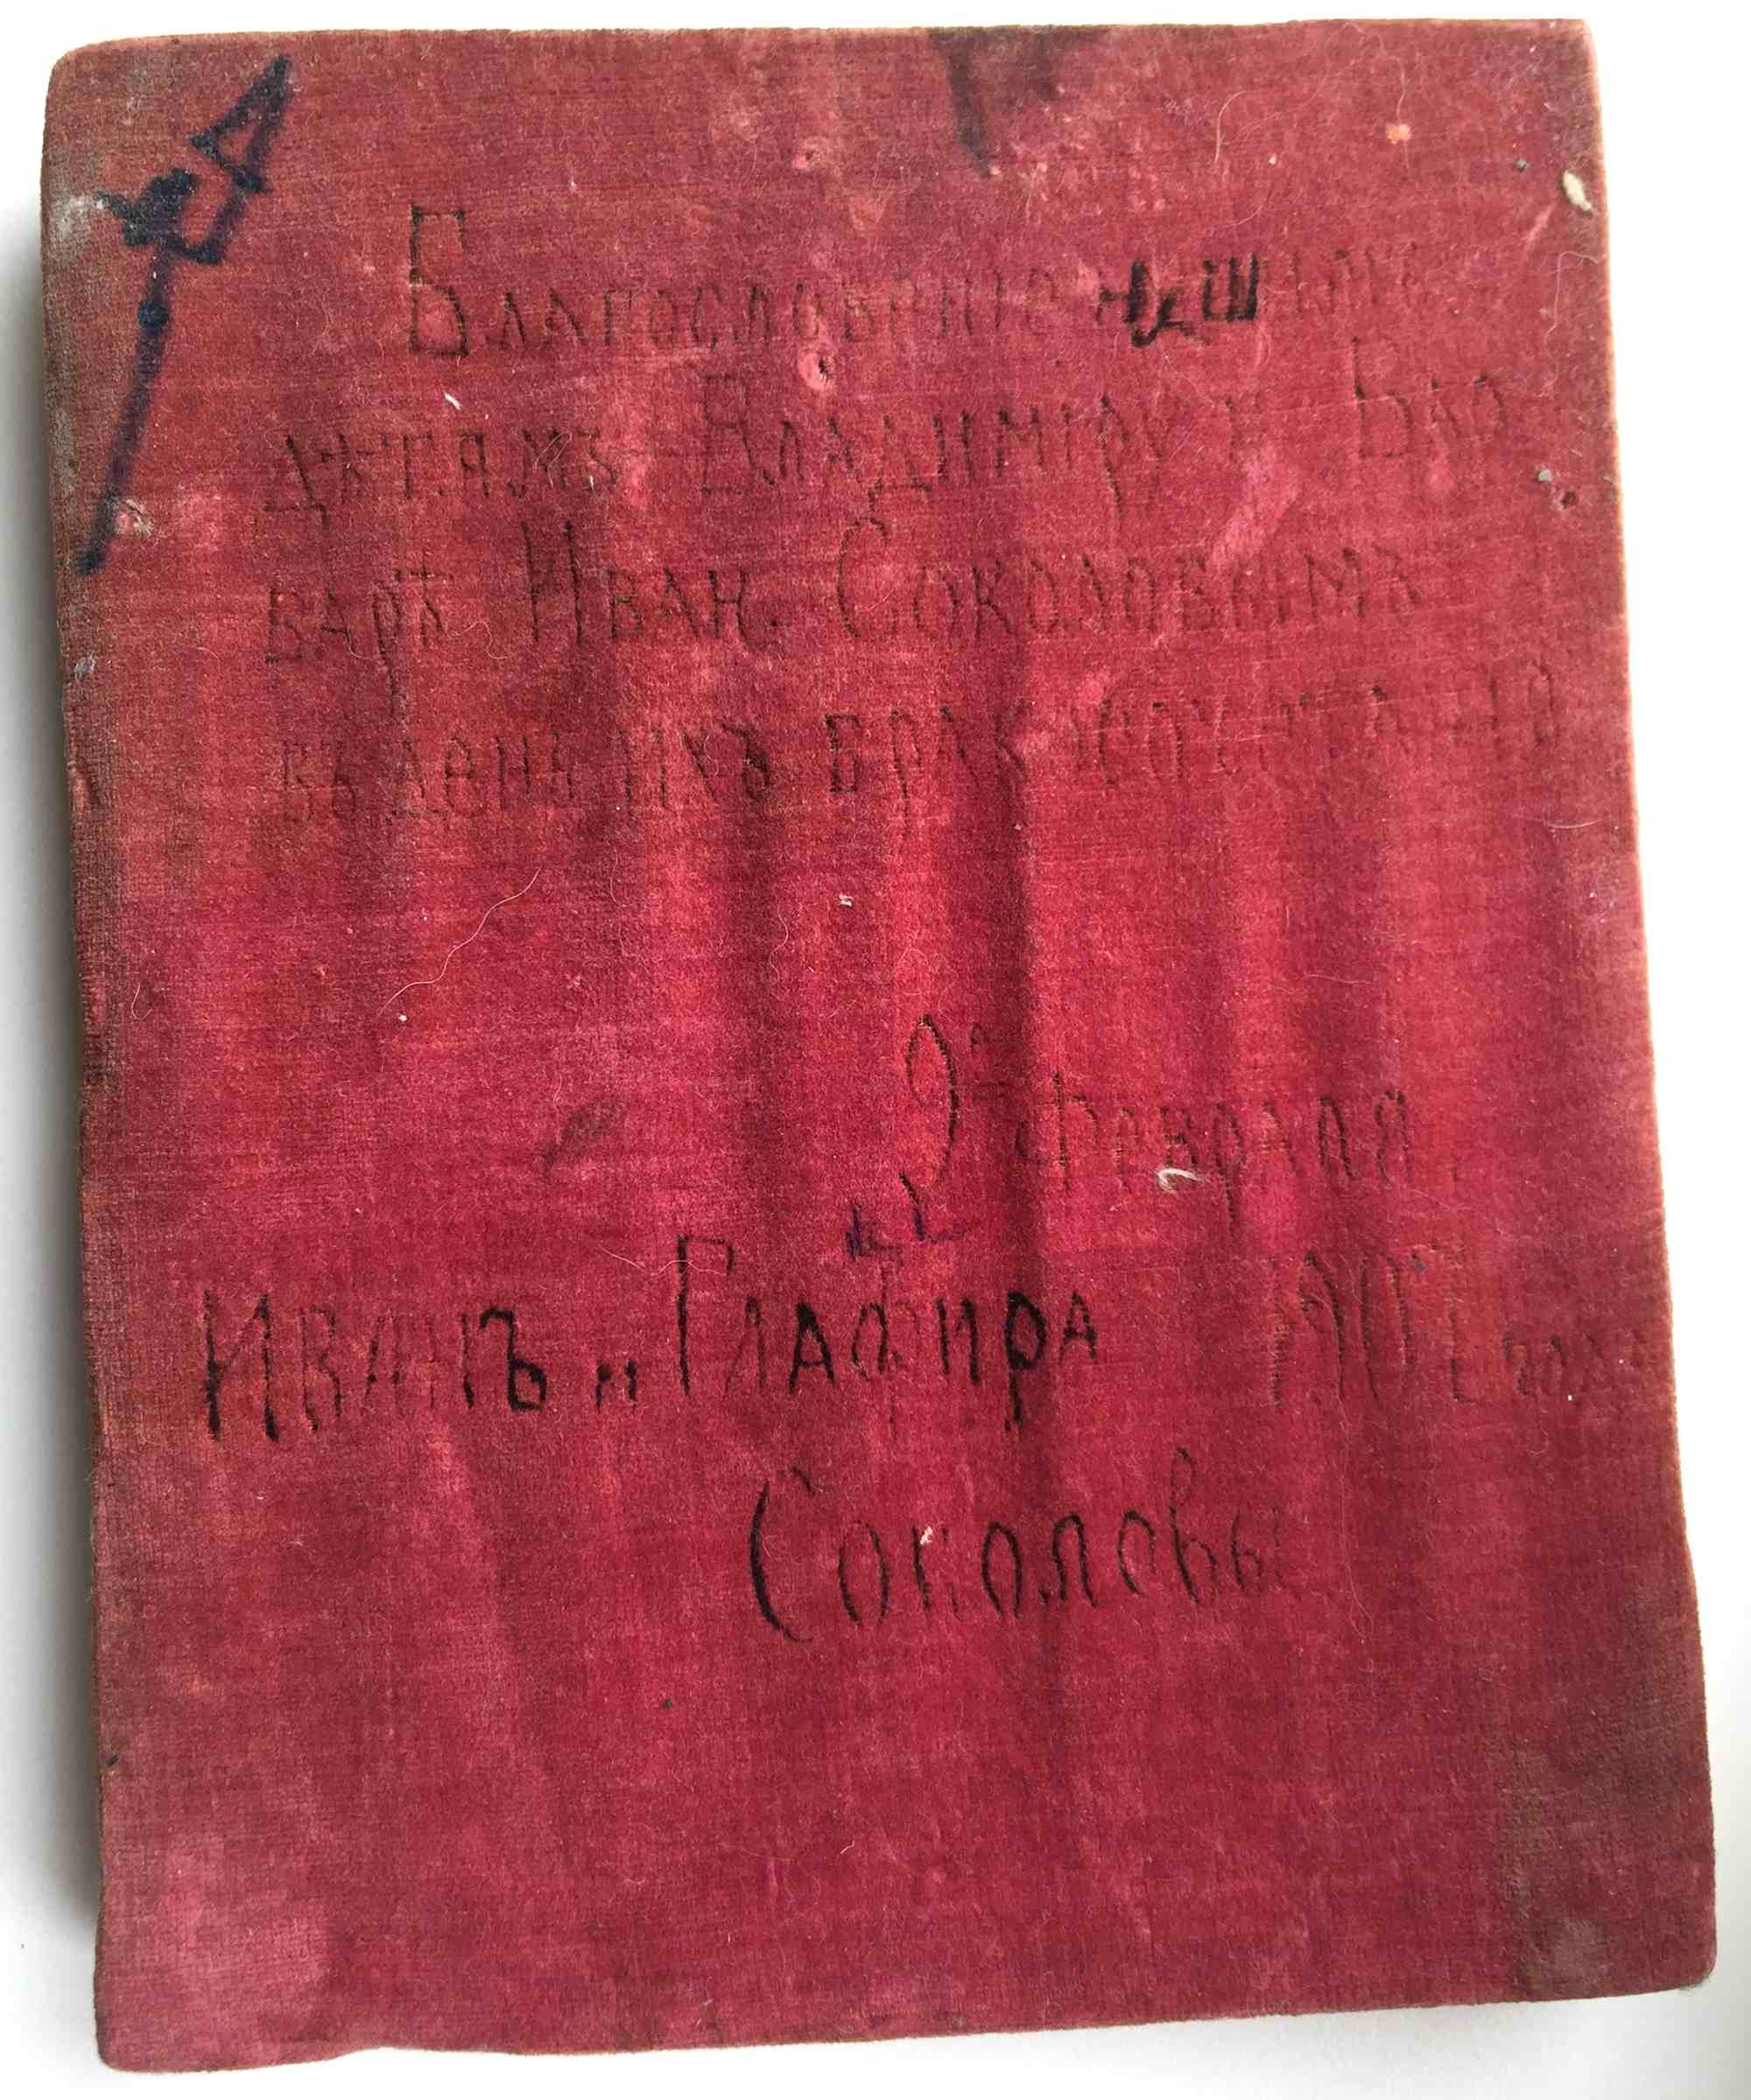 Благословение
дѣтямъ Владимiру и Вар
варѣ Иван. Соколовымъ
въ день ихъ бракосочетанiя
9го Февраля
Иванъ и Глафира
Соколовы